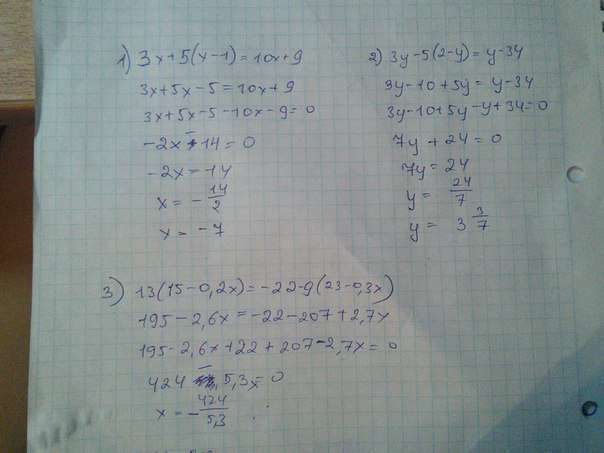 1) 3x+5(x-1)=10x+9
3x+5x-5=10x+9
3x+5x-5-10x-9=0
-2x-14=0
-2x=14
x=-14/2
x=-7
2) 3y-5(2-y)=y-34
3y-10+5y=y-34
3y-10+5y-y+34=0
7y+24=0
7y=24
y=24/7
y=3 3/7
3) 13(15-0,2x)=-22-9(23-0,3x)
195-2,6x=-22-207+2,7x
195-2,6x+22+207-2,7x=0
424-5,3x=0
x=-424/5,3